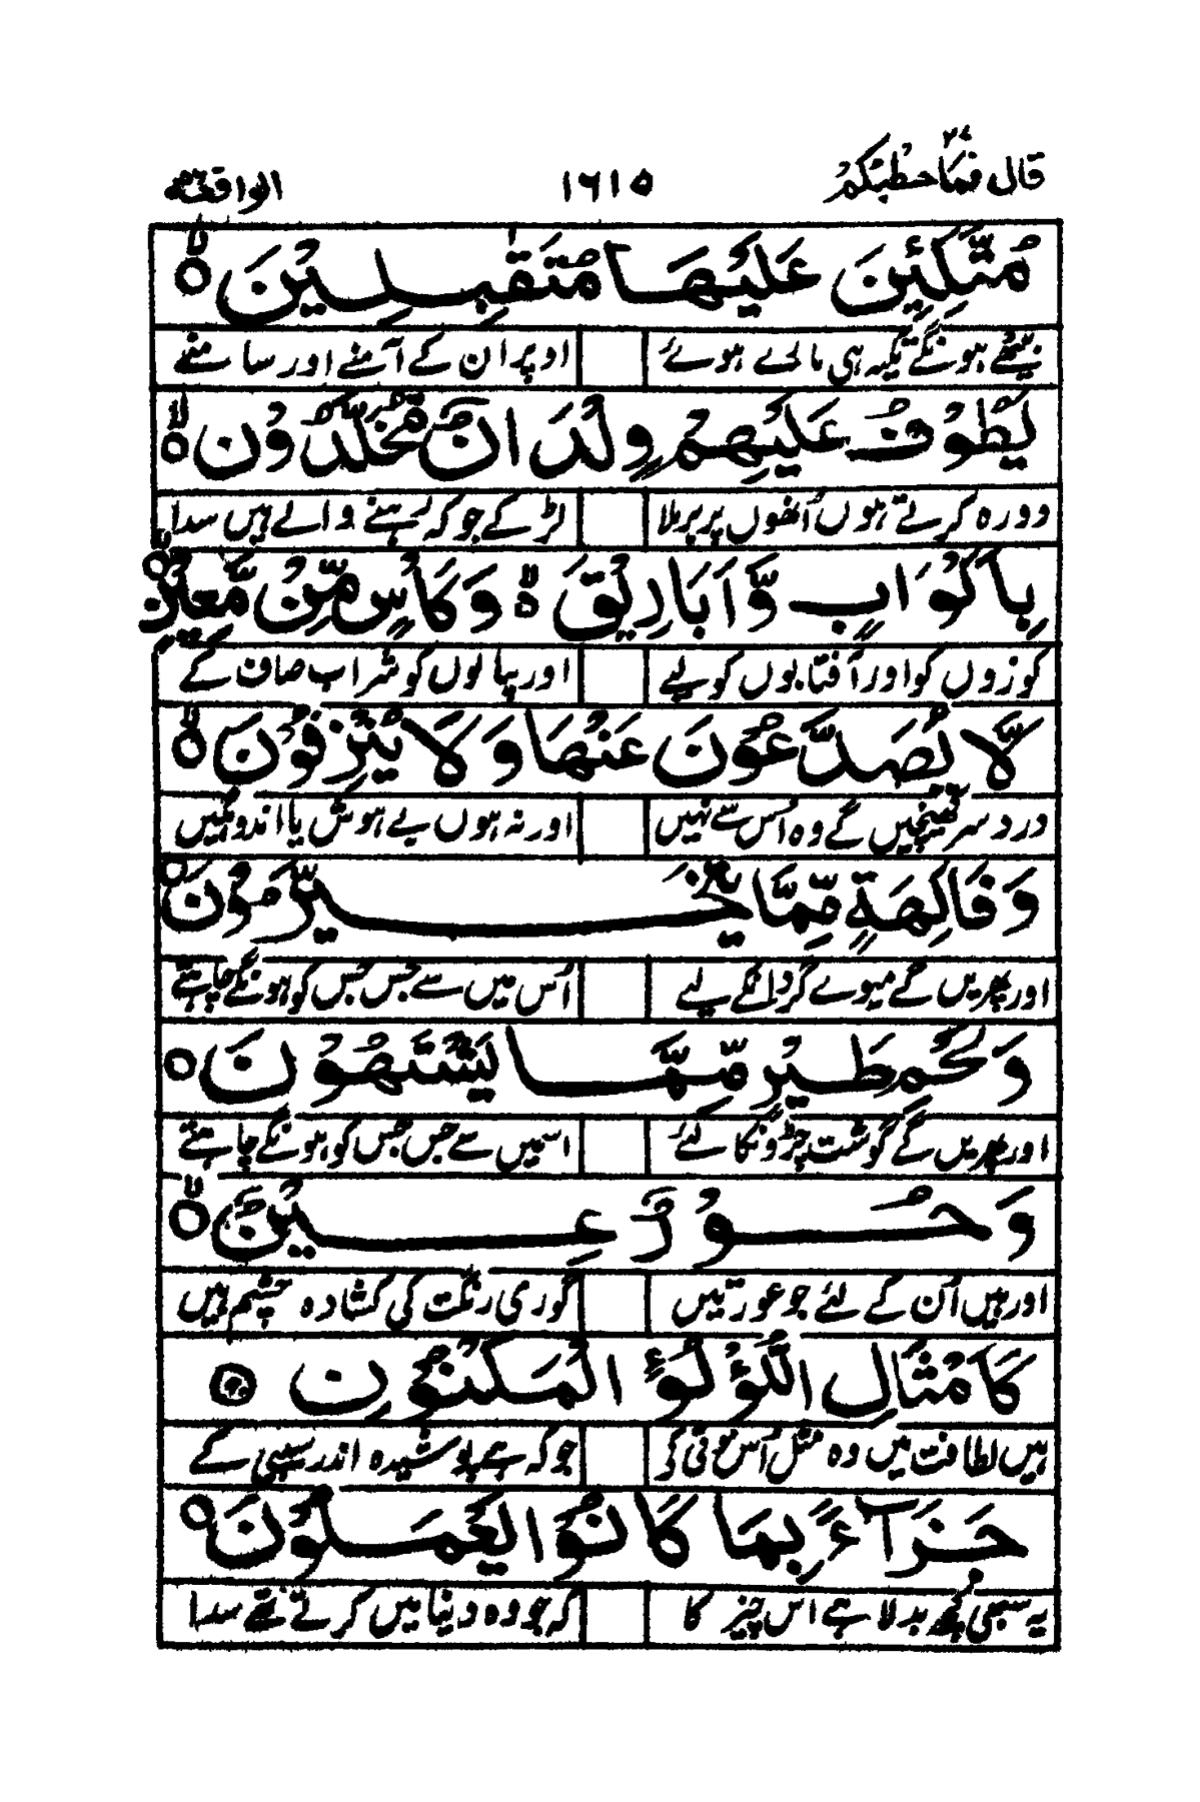 قال فما خطبکم ۲۷ ۱۶۱۵ الواقعۃ ۵۶
مُتَّكِئِينَ عَلَيْهَا مُتَقٰبِلِيْنَ ۙ
بیٹھے ہونگے تکیہ ہی مارے ہوئے اوپر ان کے آمنے اور سامنے
يَطُوْفُ عَلَيْهِمْ وِلْدَانٌ مُّخَلَّدُوْنَ ۙ
دورہ کرتے ہوں اُنھوں پر برملا لڑکے جو کہ رہنے والے ہیں سدا
بِاَكْوَابٍ وَّاَبَارِيْقَ ۙ وَكَاْسٍ مِّنْ مَّعِيْنٍ ۙ
کوزوں کو اور آفتابوں کو لیے اور پیالوں کو شراب صاف کے
لَّا يُصَدَّعُوْنَ عَنْهَا وَلَا يُنْزِفُوْنَ ۙ
درد سر کھینچیں گے وہ اُس سے نہیں اور نہ ہوں بے ہوش یا اندوہگیں
وَفَاكِهَةٍ مِّمَّا يَتَخَيَّرُوْنَ
اور پھریں گے میوے گرد انکے لیے اُس میں سے جس جس کو ہونگے چاہتے
وَلَحْمِ طَيْرٍ مِّمَّا يَشْتَهُوْنَ
اور پھریں گے گوشت چڑیونکا لئے اسمیں سے جس جس کو ہونگے چاہتے
وَحُوْرٌ عِيْنٌ ۙ
اور ہیں اُن کے لئے جو عورتیں گوری رنگت کی کشادہ چشم ہیں
كَاَمْثَالِ اللُّؤْلُؤِ الْمَكْنُوْنِ
ہیں لطافت میں وہ مثل اُس موتی کے جو کہ ہے پوشیدہ اندر سیپی کے
جَزَآءًۢ بِمَا كَانُوْا يَعْمَلُوْنَ
یہ سبھی کچھ بدلا ہے اس چیز کا کہ جو وہ دنیا میں کرتے تھے سدا